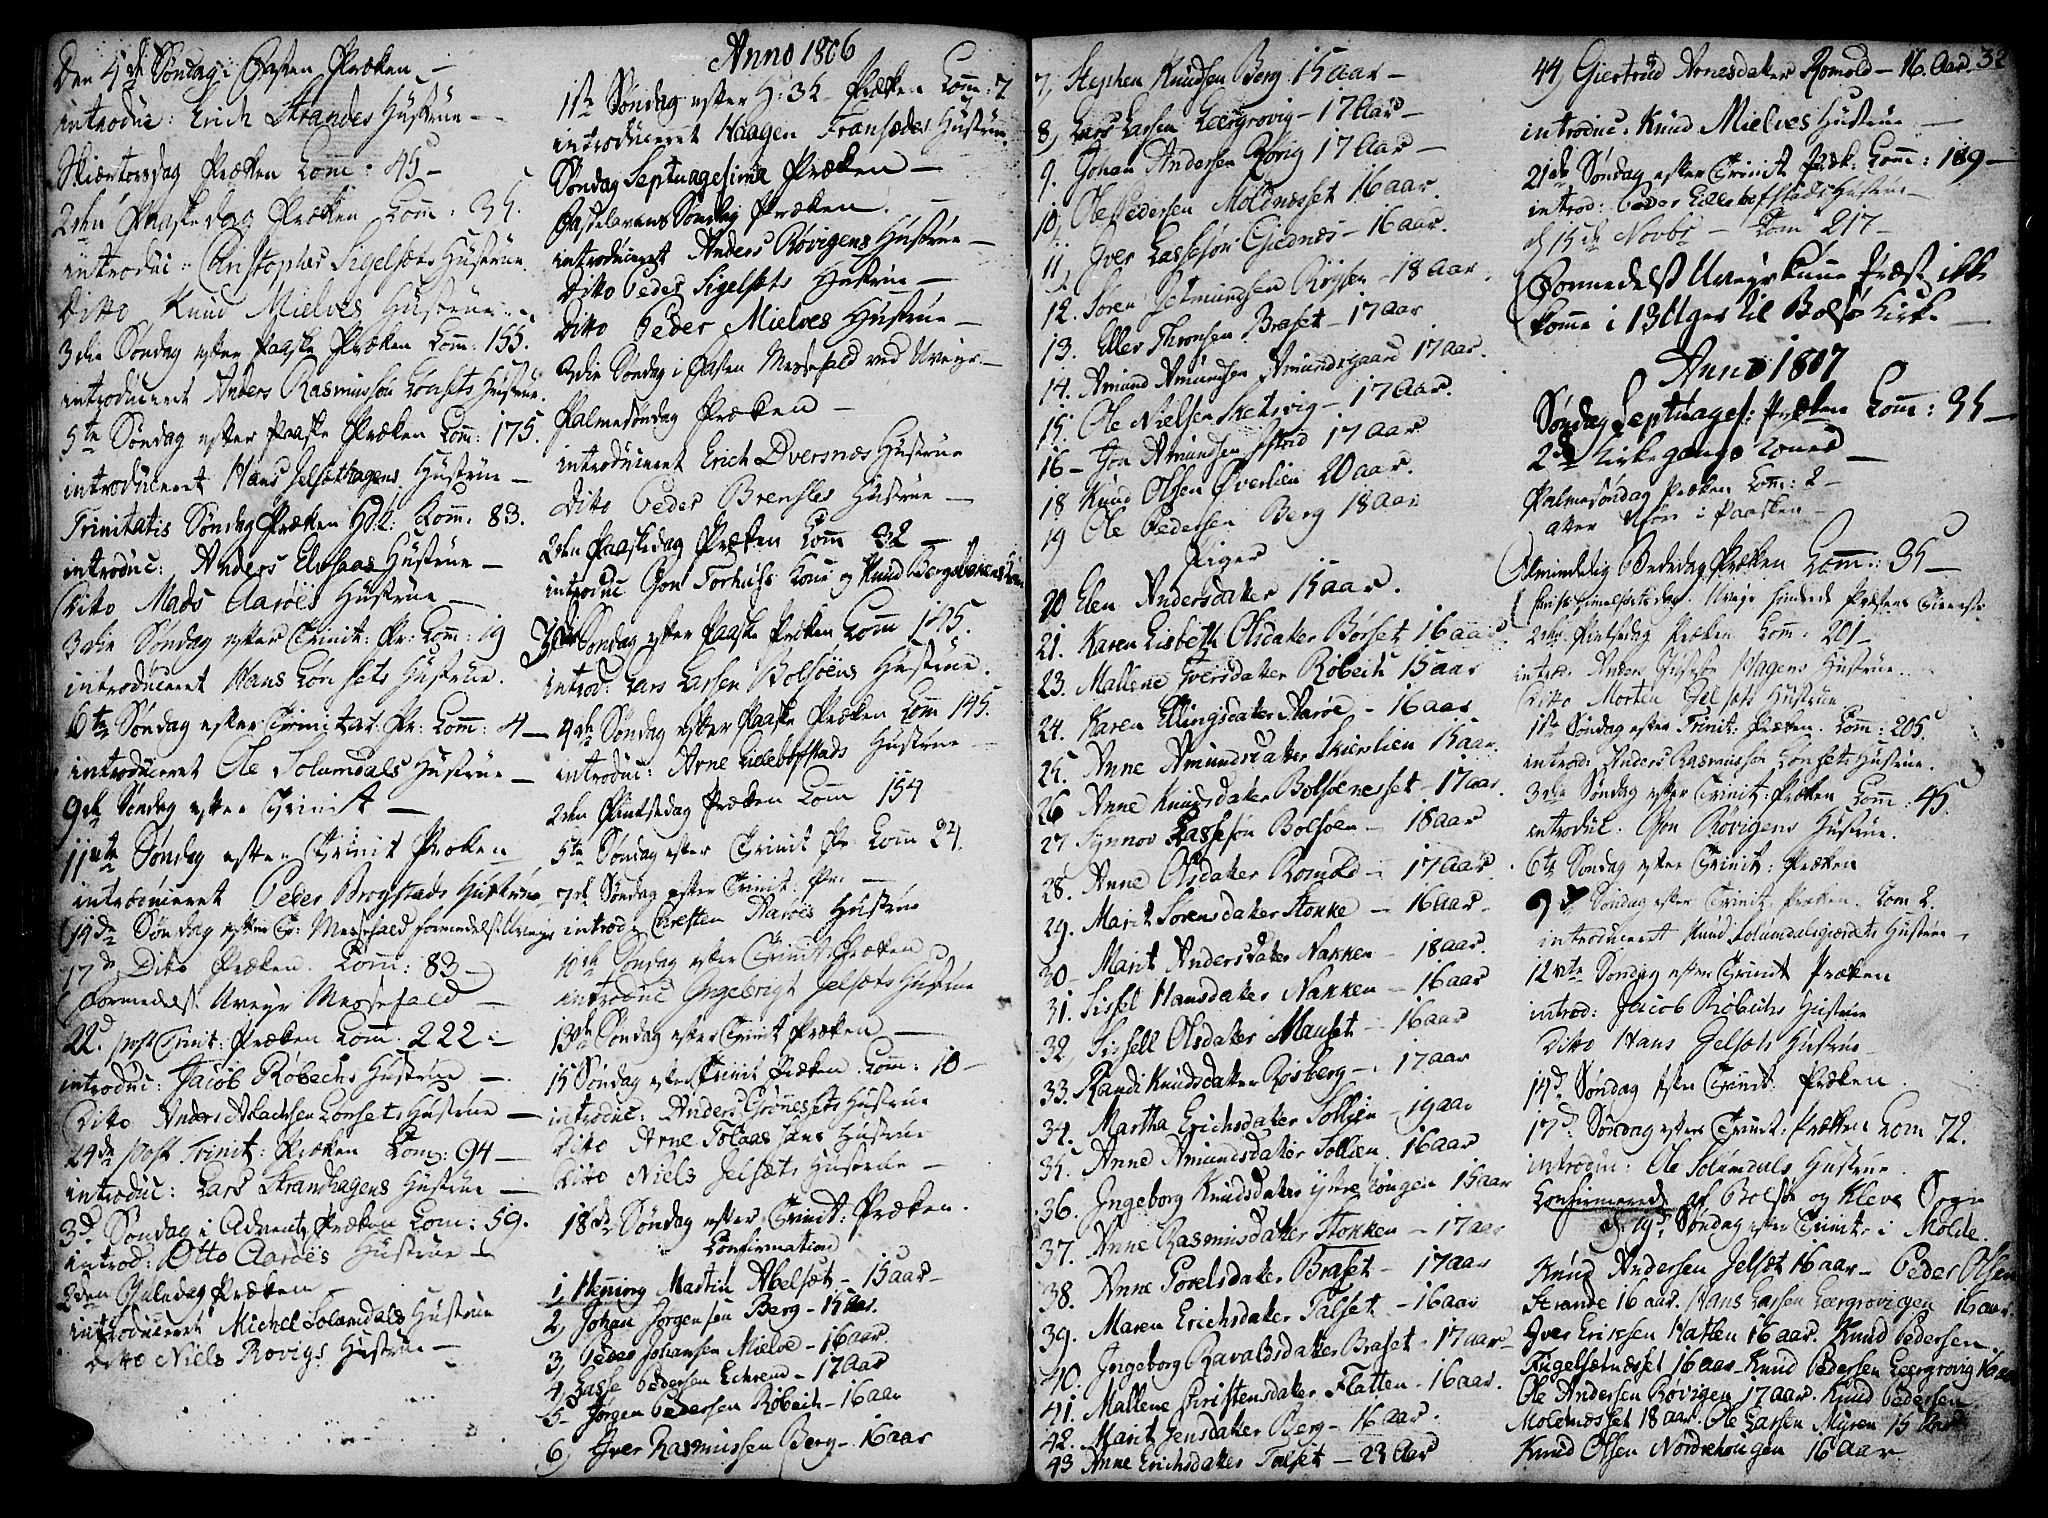 Den 4de Søndag i Fasten Præken –
introduc: Erich Strandes Hustrue –
Skiærtorsdag Præken Com: 45 –
2den Paaskedag Præken Com: 34.
introduc: Christopher Sigelsets Hustrue
Ditto Knud Mielves Hustrue
3die Søndag efter Paaske Præken Com: 155.
introduceret Anders Rasmusson Lønsets Hustrue.
5te Søndag efter Paaske Præken Com: 175.
introduceret Hans Jelsethagens Hustrue –
Trinitatis Søndag Præken Com: 83.
introduc: Anders Elvsaas Hustrue –
Ditto Mads Aaroes Hustrue –
3die Søndag efter Trinit: Pr: Com: 19
introduceret Hans Lønsets Hustrue.
6te Søndag efter Trinitat. Pr: Com: 4 –
introduceret Ole Solumdals Hustrue –
9de Søndag efter Trinit –
11te Søndag efter Trinit Præken
introduceret Peder Brogstads Hustrue
14de Søndag efter Tr: Messefald formedelst Uveyr
17de Dito Præken. Com: 83 –
Formedelst Uveyr Messefald –
22d post Trinit: Præken Com. 222 –
introduc: Jacob Røbechs Hustrue –
Ditto Anders Lønsets Hustrue –
24de post Trinit: Præken Com: 94 –
introduc: Lars Strandhagens Hustrue –
3d Søndag i Advent Præken Com: 59.
introd: Otto Aaroes Hustrue –
2den Juledag Præken –
introduceret Michel Solemdals Hustrue
Ditto Niels Rovigs Hustrue –
Anno 1806
1ste Søndag efter H: 3K Præken Com: 7
introduceret Haagen Fransædes Hustrue.
Søndag Septuagesima Præken –
Fastelavens Søndag Præken. –
introduceret Anders Røvigens Hustrue –
Ditto Peder Sigelsets Hustrue –
Ditto Peder Mielves Hustrue –
3die Søndag i Fasten Messefald ved Uveyr –
Palmesøndag Præken –
introduceret Erich Dversnes Hustrue
Ditto Peder Hustrue –
2den Paaskedag Præken Com 32 –
introduc Jon Torhuss Kone og Knud
3die Søndag efter Paaske Præken Com 175.
introd: Lars Larsen Bolsøens Hustrue.
4de Søndag efter Paaske Præken Com 145.
introduc: Arne Lillebostads Hustrue –
2den Pintsedag Præken Com 154
5te Søndag efter Trinit Pr: Com 24.
7de Søndag efter Trinit: Pr: –
introd: Christen Aaroes Hustrue
10de Søndag efter Trinit Præken
introduc Ingebrigt Jelsets Hustrue
13de Søndag efter Trinit Præken –
15 Søndag efter Trinit Præken Com: 10 –
introduc: Anders Grønnesets Hustrue
Dito Arne Tolaas hans Hustrue
Dito Niels Jelsets Hustrue –
18de Søndag efter Trinit: Præken.
Confirmation
1, Henning Martin Abelsæt – 15 aar –
2, Johan Jørgensen Berg – 15 Aar.
3, Peder Johansen Mielve – 16 aar.
4, Lasse Pedersen Echrem – 17 Aar
5 Jørgen Pedersen Røbech – 16 aar
6, Iver Rasmussen Berg – 16 aar
7, Stephen Knudsen Berg 15 aar –
8, Lars Larsen Leergrovig – 17 Aar –
9. Johan Andersen Rovig 17 Aar –
10, Ole Pedersen Moldnesset 16 aar.
11, Iver Lassesøn Giednes – 16 aar.
12. Søren Jetmundsen – 18 Aar.
13. Eller Thronsen Braset – 17 aar
14. Amund Amundsen Amundsgaard 17 Aar.
15. Ole Nielsen – 17 Aar.
16 – Jon Amundsen 17 Aar
18 Knud Olsen Øverlien 20 aar.
19 Ole Pedersen Berg 18 Aar
Piger
20 Elen Andersdatter 15 aar.
21. Karen Lisbeth Olsdatter Børset 16 aar
23. Mallene Iversdatter Røbech 15 aar
24. Karen Ellingsdatter Aarøe – 16 aar
25. Anne Amundsdatter Skierlien 15 aar.
26 Anne Knudsdatter Bolsoenesset – 17 aar.
27 Synnøv Lassesøn Bolsoen – 16 aar
28. Anne Olsdatter Romold – 17 Aar.
29. Marit Sørensdatter Stokke – 16 Aar –
30 – Marit Andersdatter Nakken – 18 aar.
31. Sissel Hansdatter Nakken – 16 aar
32, Sissell Olsdatter Mauset – 16 aar
33. Randi Knudsdatter Røsberg – 17 aar
34. Martha Erichsdatter Sollien – 19 aar
35. Anne Amundsdatter Sollien. 16 aar
36. Ingeborg Knudsdatter ytre hougen 15 aar
37. Anne Rasmusdatter Stokken – 17 aar
38. Anne Povelsdatter Braset – 17 aar
39. Maren Erichsdatter Talset – 16 aar
40. Ingeborg Ravaldsdatter Braset – 17 aar –
41. Mallene Christensdatter Flatten – 16 aar.
42. Marit Jensdatter Berg – 16 aar.
43 Anne Erichsdatter Talset – 23 Aar
44, Giertrud Arnesdatter Romold – 16. Aar. 32
introduc: Knud Mielves Hustrue –
21de Søndag efter Trinit Præk. Com: 189 –
introd: Peder Lillebostads Hustrue –
d 15de Novbr – Com 217 –
Formedelst Uveyr kune Præst ikke
komme i 13 Uger til Bolsø Kirke –
Anno 1807
Søndag Septuages: Præken Com: 35 –
2de Kirkegangs Koner –
Palmesøndag Præken Com: 2 –
atter i Paasken –
Almindelig Bededag Præken Com: 35 –
Christi himelfartsdag. Uveyr hindrede Præstens Tieneste
2den Pintsedag Præken Com: 201 –
introd: Anders Hagens Hustrue.
Ditto Morten Gelsets Hustrue.
1ste Søndag efter Trinit: Præken. Com: 205
introd: Anders Rasmusson Lonsets Hustrue.
3die Søndag efter Trinit: Præken Com: 45
introduc. Jon Rovigens Hustrue.
6te Søndag efter Trinit: Præken
9de Søndag efter Trinit. Præken. Com 2.
introduceret Knud Solumdalsgierdets Hustrue –
12te Søndag efter Trinit Præken
introd: Jacob Røbechs Hustrue
Ditto Hans Gelsets Hustrue
14d. Søndag efter Trinit. Præken.
17d: Søndag efter Trinit: Præken Com 72.
introduc: Ole Solumdals Hustrue
Confirmered af Bolsø og Kleve Sogn
d. 19d. Søndag efter Trinit: i Molde.
Knud Andersen Jelset 16 aar – Peder Olsen
Strande 16 aar. Hans Larsen Leergrovigen 16 aar.
Iver Ericsen Hatlen 16 aar. Knud Pedersen
Fugelsetnesset 16 aar – Knud Pedersen Leergrovig 16 aar
Ole Andersen Røvigen 17 aar. Knud Pedersen
Moldnesset 18 aar. Ole Larsen Myren 15 aar
Knud Olsen Nordrehougen 16 Aar.